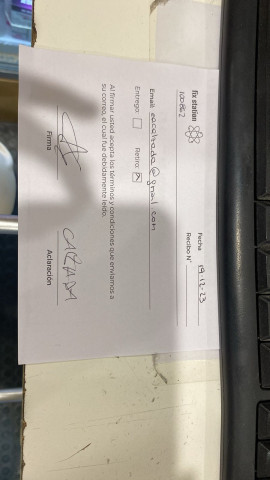 fix station
Fecha 19-12-23
Recibo N°
Email
Entrego: Retiro: X
Al firmar usted acepta los términos y condiciones que enviamos a
su correo, el cual fue debidamente leído.
CALZADA
Firma Aclaración